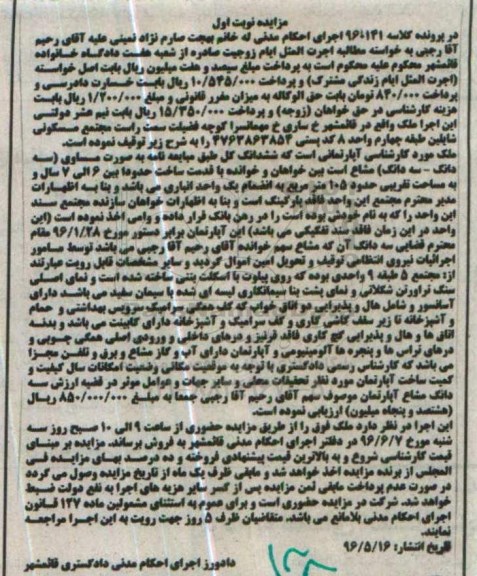 مزایده نوبت اول
در پرونده کلاسه ۹۶۰۱۴۱ اجرای احکام مدنی له خانم بهجت صارم نژاد ثمینی علیه آقای رحیم
آقا رجبی به خواسته مطالبه اجرت المثل ایام زوجیت صادره از شعبه هفت دادگاه خانواده
قائمشهر محکوم علیه محکوم است به پرداخت مبلغ سیصد و هفت میلیون ریال بابت اصل خواسته
(اجرت المثل ایام زندگی مشترک) و پرداخت ۱۰/۵۴۵/۰۰۰ ریال بابت خسارت دادرسی و
پرداخت ۸۴۰/۰۰۰ تومان بابت حق الوکاله به میزان مقرر قانونی و مبلغ ۱/۲۰۰/۰۰۰ ریال بابت
هزینه کارشناسی در حق خواهان (زوجه) و پرداخت ۱۵/۳۵۰/۰۰۰ ریال بابت نیم عشر دولتی
این اجرا ملک واقع در قائمشهر خ ساری خ مهمانسرا کوچه فضیلت سمت راست مجتمع مسکونی
شایلین طبقه چهارم واحد ۸ کد پستی ۴۷۶۳۸۶۳۸۵۴ را به شرح زیر توقیف نموده است.
ملک مورد کارشناسی آپارتمانی است که ششدانگ کل طبق مبایعه نامه به صورت مساوی (سه
دانگ - سه دانگ) مشاع است بین خواهان و خوانده با قدمت ساخت حدودا بین ۶ الی ۷ سال و
به مساحت تقریبی حدود ۱۰۵ متر مربع به انضمام یک واحد انباری می باشد و بنا به اظهارات
مدیر محترم مجتمع این واحد فاقد پارکینگ است و بنا به اظهارات خواهان سازنده مجتمع سند
این واحد را که به نام خودش بوده است را در رهن بانک قرار داده و وامی اخذ نموده است (این
واحد در این زمان فاقد سند تفکیکی می باشد) این آپارتمان برابر دستور مورخ ۹۶/۱/۲۸ مقام
محترم قضایی سه دانگ آن که مشاع سهم خوانده آقای رحیم آقا رجبی می باشد توسط مامور
اجرائیات نیروی انتظامی توقیف و تحویل امین اموال گردید و سایر مشخصات قابل رویت عبارتند
از: مجتمع ۵ طبقه ۹ واحدی بوده که روی پیلوت با اسکلت بتنی ساخته شده است و نمای اصلی
سنگ تراورتن شکلاتی و نمای پشت بنا سیمانکاری لیسه ای شده با سیمان سفید می باشد دارای
آسانسور و شامل هال و پذیرایی دو اتاق خواب که کف همگی سرامیک سرویس بهداشتی و حمام
و آشپزخانه تا زیر سقف کاشی کاری و کف سرامیک و آشپزخانه دارای کابینت می باشد و بدنه
اتاق ها و هال و پذیرایی گچ کاری فاقد قرنیز و درهای داخلی و ورودی اصلی همگی چوبی و
درهای تراس ها و پنجره ها آلومینیومی و آپارتمان دارای آب و گاز مشاع و برق و تلفن مجزا
می باشد که کارشناس رسمی دادگستری با توجه به موقعیت مکانی وضعیت امکانات سال کیفیت و
کمیت ساخت آپارتمان مورد نظر تحقیقات محلی و سایر جهات و عوامل موثر در قضیه ارزش سه
دانگ مشاع آپارتمان موصوف سهم آقای رحیم آقا رجبی جمعا به مبلغ ۸۵۰/۰۰۰/۰۰۰ ریال
(هشتصد و پنجاه میلیون) ارزیابی نموده است.
این اجرا در نظر دارد ملک فوق را از طریق مزایده حضوری از ساعت ۹ الی ۱۰ صبح روز سه
شنبه مورخ ۹۶/۶/۷ در دفتر اجرای احکام مدنی قائمشهر به فروش برساند. مزایده بر مبنای
قیمت کارشناسی شروع و به بالاترین قیمت پیشنهادی فروخته و ده درصد بهای مزایده فی
المجلس از برنده مزایده اخذ خواهد شد و مابقی ظرف یک ماه از تاریخ مزایده وصول می گردد
در صورت عدم پرداخت مابقی ثمن مزایده پس از کسر سایر هزینه های اجرا به نفع دولت ضبط
خواهد شد. شرکت در مزایده حضوری است و برای عموم به استثنای مشمولین ماده ۱۲۷ قانون
اجرای احکام مدنی بلامانع می باشد. متقاضیان ظرف ۵ روز جهت رویت به این اجرا مراجعه
نمایند.
تاریخ انتشار: ۹۶/۵/۱۶
دادورز اجرای احکام مدنی دادگستری قائمشهر